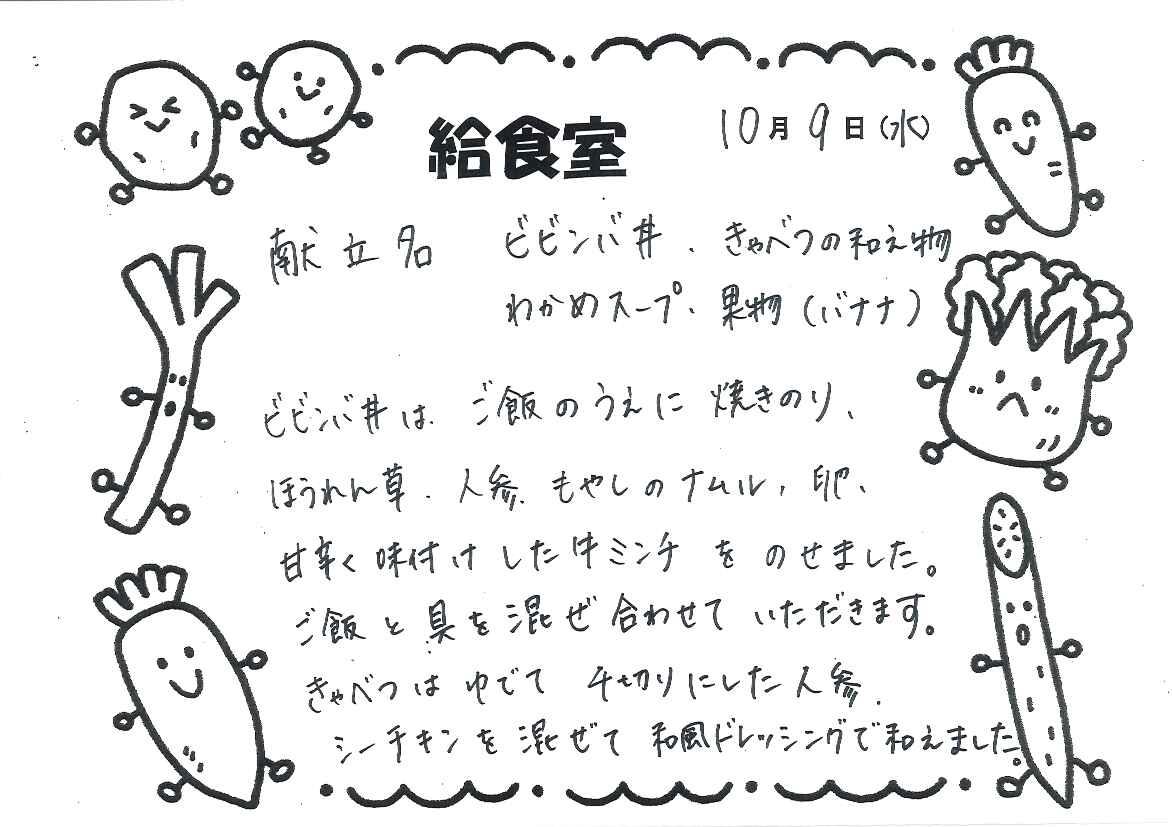 給食室 10月9日(水)
献立名 ビビンバ丼、きゃべつの和え物
わかめスープ、果物(バナナ)
ビビンバ丼は、ご飯のうえに焼きのり、
ほうれん草、人参、もやしのナムル、卵、
甘辛く味付けした牛ミンチをのせました。
ご飯と具を混ぜ合わせていただきます。
きゃべつはゆでて千切りにした人参、
シーチキンを混ぜて和風ドレッシングで和えました。